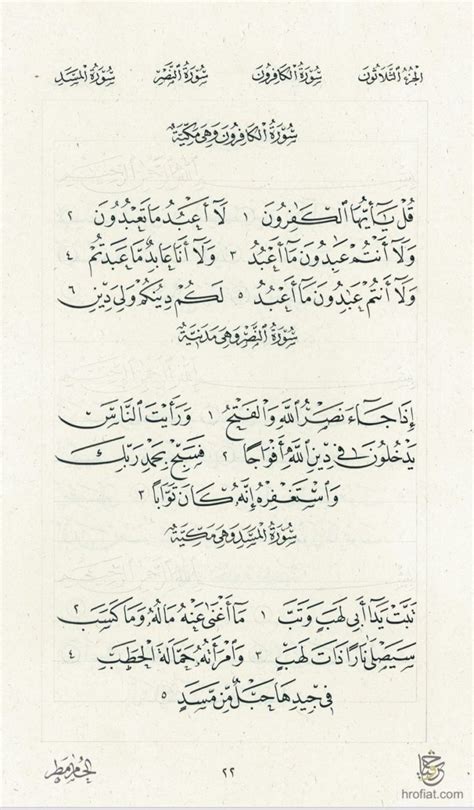 الجزء الثلاثون سورة الكافرون سورة النصر سورة المسد
سورة الكافرون وهي مكية
قُلْ يَٰٓأَيُّهَا ٱلْكَٰفِرُونَ ١ لَآ أَعْبُدُ مَا تَعْبُدُونَ ٢
وَلَآ أَنتُمْ عَٰبِدُونَ مَآ أَعْبُدُ ٣ وَلَآ أَنَا۠ عَابِدٌ مَّا عَبَدتُّمْ ٤
وَلَآ أَنتُمْ عَٰبِدُونَ مَآ أَعْبُدُ ٥ لَكُمْ دِينُكُمْ وَلِيَ دِينِ ٦
سورة النصر وهي مدنية
إِذَا جَآءَ نَصْرُ ٱللَّهِ وَٱلْفَتْحُ ١ وَرَأَيْتَ ٱلنَّاسَ
يَدْخُلُونَ فِى دِينِ ٱللَّهِ أَفْوَاجًا ٢ فَسَبِّحْ بِحَمْدِ رَبِّكَ
وَٱسْتَغْفِرْهُ إِنَّهُۥ كَانَ تَوَّابًۢا ٣
سورة المسد وهي مكية
تَبَّتْ يَدَآ أَبِى لَهَبٍ وَتَبَّ ١ مَآ أَغْنَىٰ عَنْهُ مَالُهُۥ وَمَا كَسَبَ ٢
سَيَصْلَىٰ نَارًا ذَاتَ لَهَبٍ ٣ وَٱمْرَأَتُهُۥ حَمَّالَةَ ٱلْحَطَبِ ٤
فِى جِيدِهَا حَبْلٌ مِّن مَّسَدٍۭ ٥
٢٢
hrofiat.com